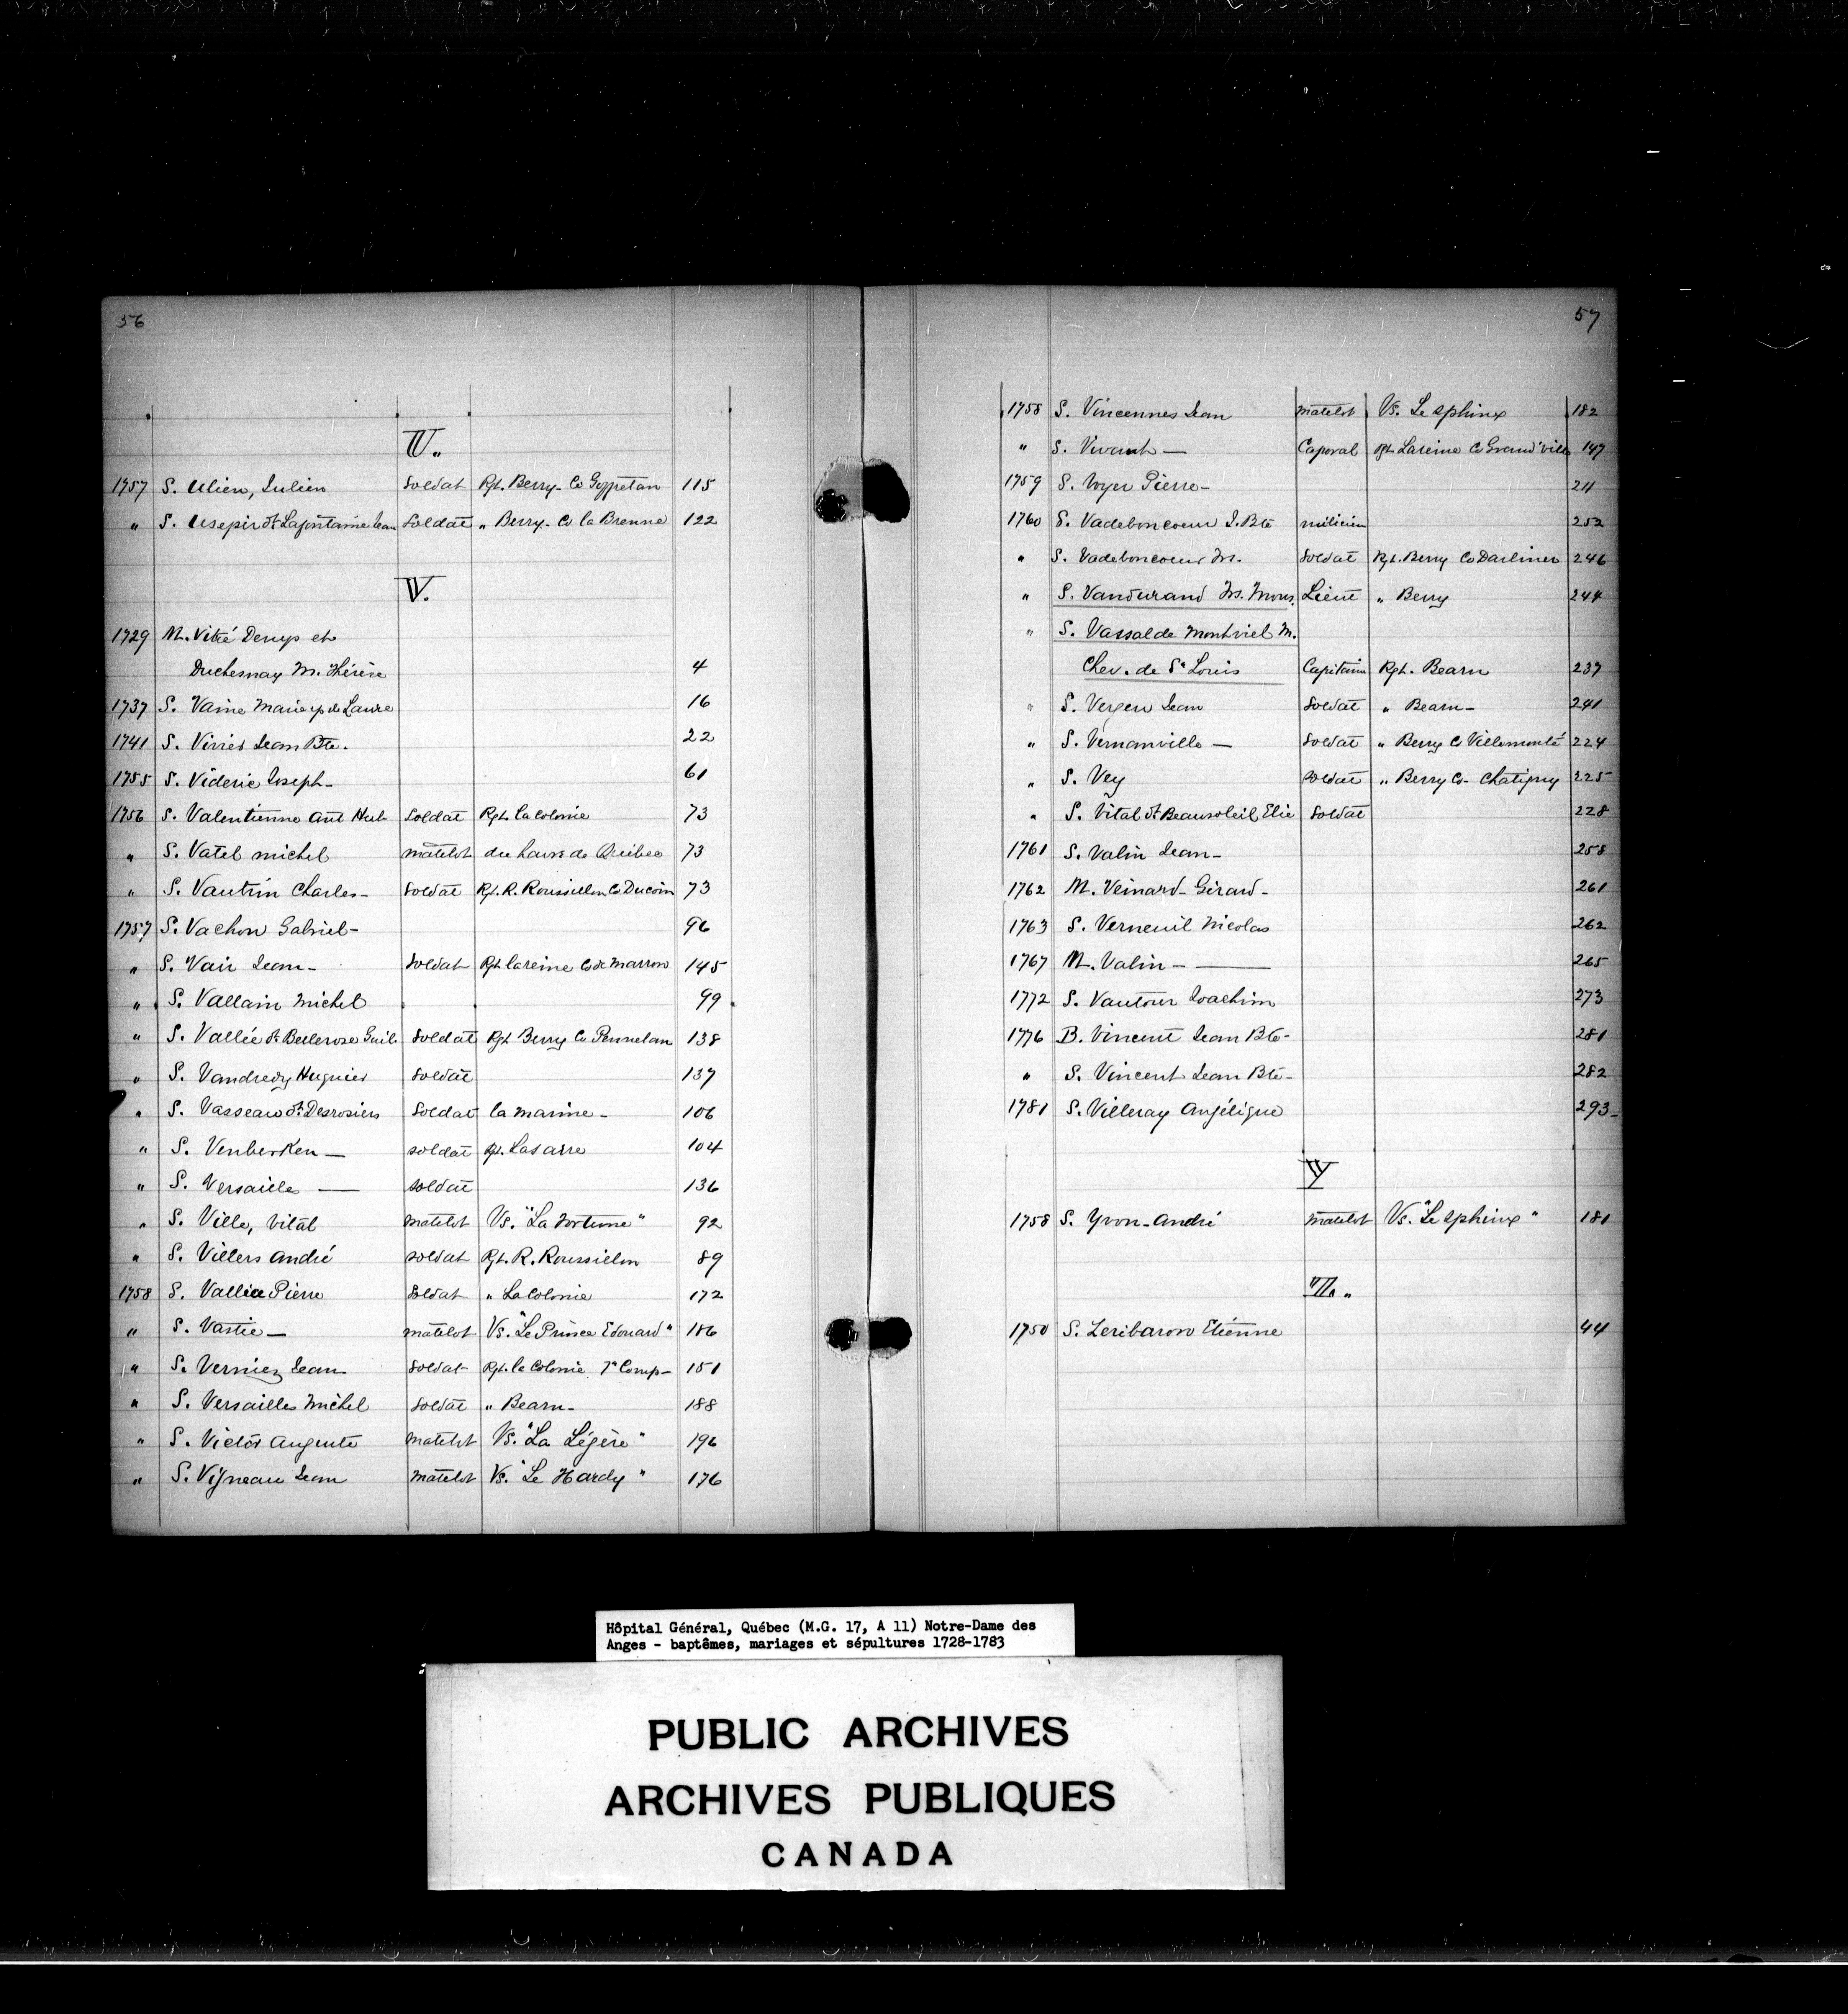 56
U.
1757 S. Ulien, Julien soldat Rgt. Berry - Co Goppetan 115
" S. Usepir dt Lafontaine Jean soldat " Berry - Co la Brenne 122
V.
1729 M. Vitré Denys et
Duchesnay M. Thérèse 4
1737 S. Vaine Marie ép de Laure 16
1741 S. Virier Jean Bte. 22
1755 S. Viderie Joseph - 61
1756 S. Valentienne Ant Hub soldat Rgt. la Colonie 73
" S. Vatel Michel matelot du havre de Québec 73
" S. Vautrin Charles - soldat Rgt. R. Roussillon Co Ducoin 73
1757 S. Vachon Gabriel - 96
" S. Vair Jean - soldat Rgt la reine Co de Marron 145
" S. Vallain Michel 99
" S. Vallée dt Bellerose Guil. soldat Rgt Berry Co Pennelan 138
" S. Vandredy Huguier soldat 137
" S. Vasseau dt Desrosiers soldat la marine - 106
" S. Venberken — soldat Rgt. Lasarre 104
" S. Versailles — soldat 136
" S. Ville, Vital matelot Vs. "La Fortune" 92
" S. Villers André soldat Rgt. R. Roussillon 89
1758 S. Vallée Pierre soldat " La Colonie 172
" S. Vastie — matelot Vs. "Le Prince Edouard" 186
" S. Verniez Jean soldat Rgt. la Colonie 7e Comp - 151
" S. Versailles Michel soldat " Bearn - 188
" S. Victor Auguste matelot Vs. "La Légère" 196
" S. Vigneau Jean matelot Vs. "Le Hardy" 176
57
1758 S. Vincennes Jean matelot Vs. Le Sphinx 182
" S. Vivant — Caporal Rgt. Lareine Co Grand'ville 147
1759 S. Voyer Pierre - 211
1760 S. Vadeboncoeur J. Bte milicien 252
" S. Vadeboncoeur Frs. soldat Rgt. Berry Co Darlines 246
" S. Vandurand Frs. Mous. Lieut " Berry 244
" S. Vassal de Montviel M.
Chev. de St Louis Capitaine Rgt. Bearn 237
" S. Vergen Jean soldat " Bearn - 241
" S. Vernanville — soldat " Berry Co Villemonté 224
" S. Vey soldat " Berry Co - Chatigny 225
" S. Vital dt Beausoleil Elie soldat 228
1761 S. Valin Jean - 258
1762 M. Veinard - Gérard - 261
1763 S. Verneuil Nicolas 262
1767 M. Valin - — 265
1772 S. Vautour Joachim 273
1776 B. Vincent Jean Bte - 281
" S. Vincent Jean Bte - 282
1781 S. Villeray Angélique 293 -
Y
1758 S. Yvon - André matelot Vs. "Le Sphinx" 181
Z.
1750 S. Zeribaron Etienne 44
Hôpital Général, Québec (M.G. 17, A 11) Notre-Dame des
Anges - baptêmes, mariages et sépultures 1728-1783
PUBLIC ARCHIVES
ARCHIVES PUBLIQUES
CANADA